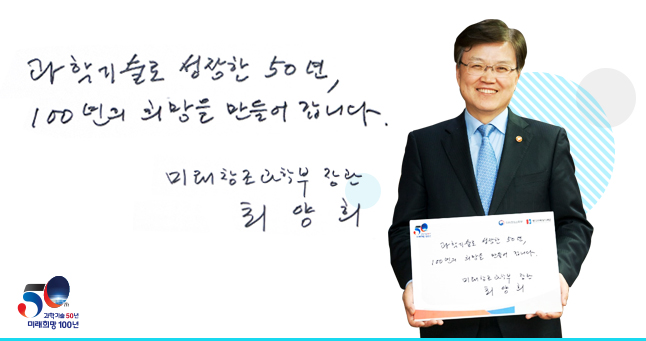 과학기술로 성장한 50년,
100년의 희망을 만들어 갑니다.
미래창조과학부 장관
최 양 희
50
과학기술 50년
미래희망 100년
50
과학기술로 성장한 50년,
100년의 희망을 만들어 갑니다.
미래창조과학부 장관
최 양 희